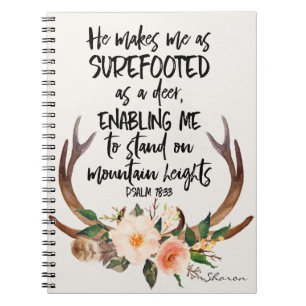 He makes me as
SUREFOOTED
as a deer,
ENABLING ME
to stand on
mountain heights
PSALM 18:33
Sharon